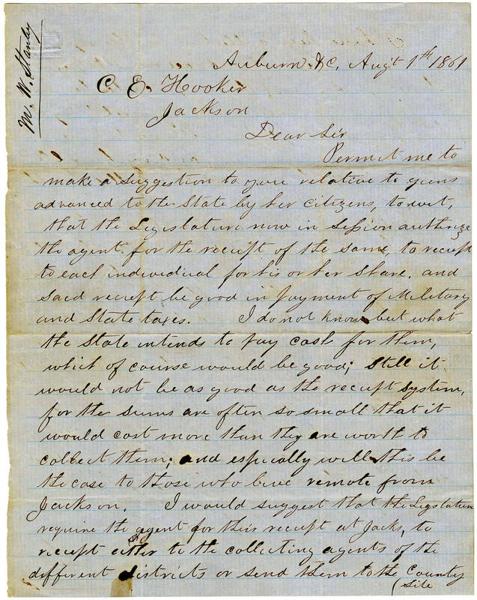 M. W. Stanly
Auburn &c, Augt 1th 1861
C. E. Hooker
Jackson
Dear Sir
Permit me to
make a suggestion to you relative to guns
advanced to the State by her citizens, to wit,
that the Legislature now in session authorize
the agent for the receipt of the same, to receipt
to each individual for his or her share, and
said receipt be good in payment of Military
and State taxes. I do not know but what
the State intends to pay cash for them,
which of course would be good; Still it
would not be as good as the receipt system,
for the sums are often so small that it
would cost more than they are worth to
collect them, and espially will this be
the case to those who live remote from
Jackson. I would suggest that the Legislature
require the agent for this receipt at Jack, to
receipt either to the collecting agents of the
different districts or send them to the County
Site